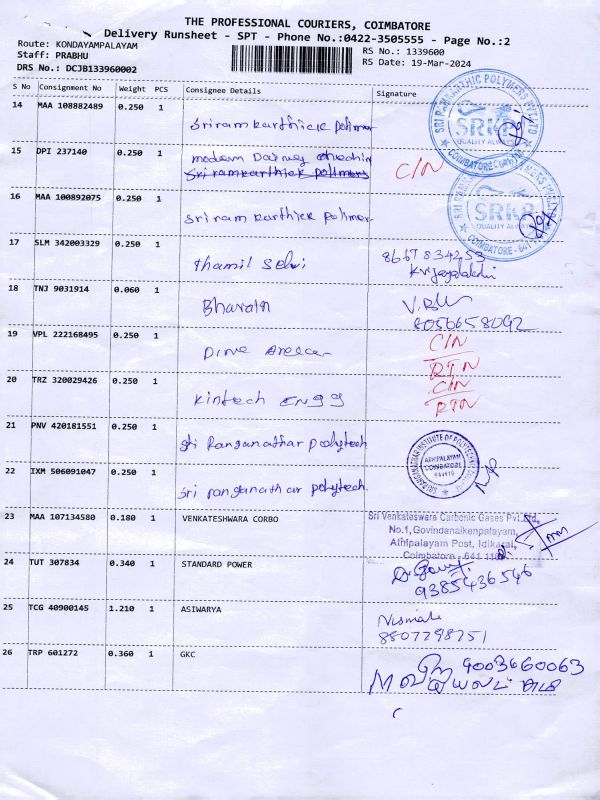 THE PROFESSIONAL COURIERS, COIMBATORE
Delivery Runsheet - SPT - Phone No.:0422-3505555 - Page No.:2
Route: KONDAYAMPALAYAM
Staff: PRABHU
DRS No.: DCJB133960002
RS No.: 1339600
RS Date: 19-Mar-2024
S No Consignment No Weight PCS Consignee Details Signature
14 MAA 108882489 0.250 1
Sriram karthick polimer
SRKP
QUALITY ALWAYS
15 DPI 237140 0.250 1 modern Dairy
Sri ramkarthick polimers C/N
16 MAA 100892075 0.250 1
Sriram karthick polimer
SRKP
QUALITY ALWAYS
COIMBATORE - 641
17 SLM 342003329 0.250 1
Thamil Selvi 8667834253
18 TNJ 9031914 0.060 1
Bharath
8056658092
19 VPL 222168495 0.250 1 C/N
RTN
20 TRZ 320029426 0.250 1 C/N
Kintech Engg RTN
21 PNV 420181551 0.250 1
Sri Ranganathar polytech
ATHIPALAYAM
COIMBATORE
22 IXM 506091047 0.250 1
Sri ranganathar polytech
23 MAA 107134580 0.180 1 VENKATESHWARA CORBO Sri Venkateswara Carbonic Gases Pvt.Ltd,
No.1,Govindanaikenpalayam,
Athipalayam Post, Idikarai,
Coimbatore - 641
24 TUT 307834 0.340 1 STANDARD POWER
9385436546
25 TCG 40900145 1.210 1 ASIWARYA Nirmala
8807798751
26 TRP 601272 0.360 1 GKC 9003660063